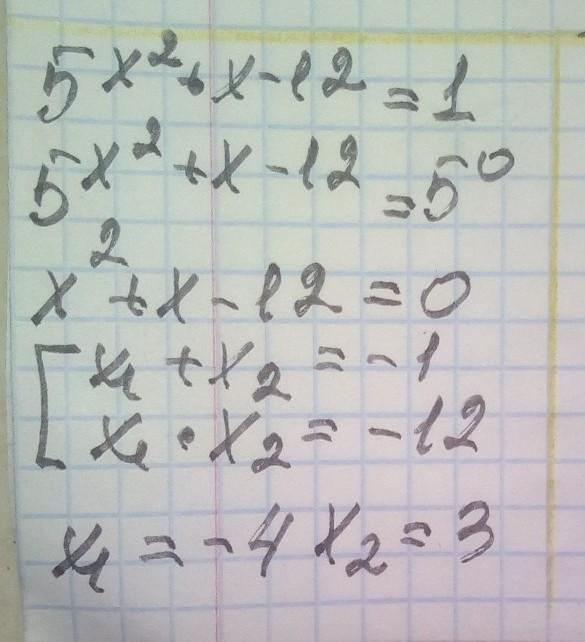 5^{x^2+x-12}=1
5^{x^2+x-12}=5^0
x^2+x-12=0
[x_1+x_2=-1
x_1·x_2=-12
x_1=-4 x_2=3